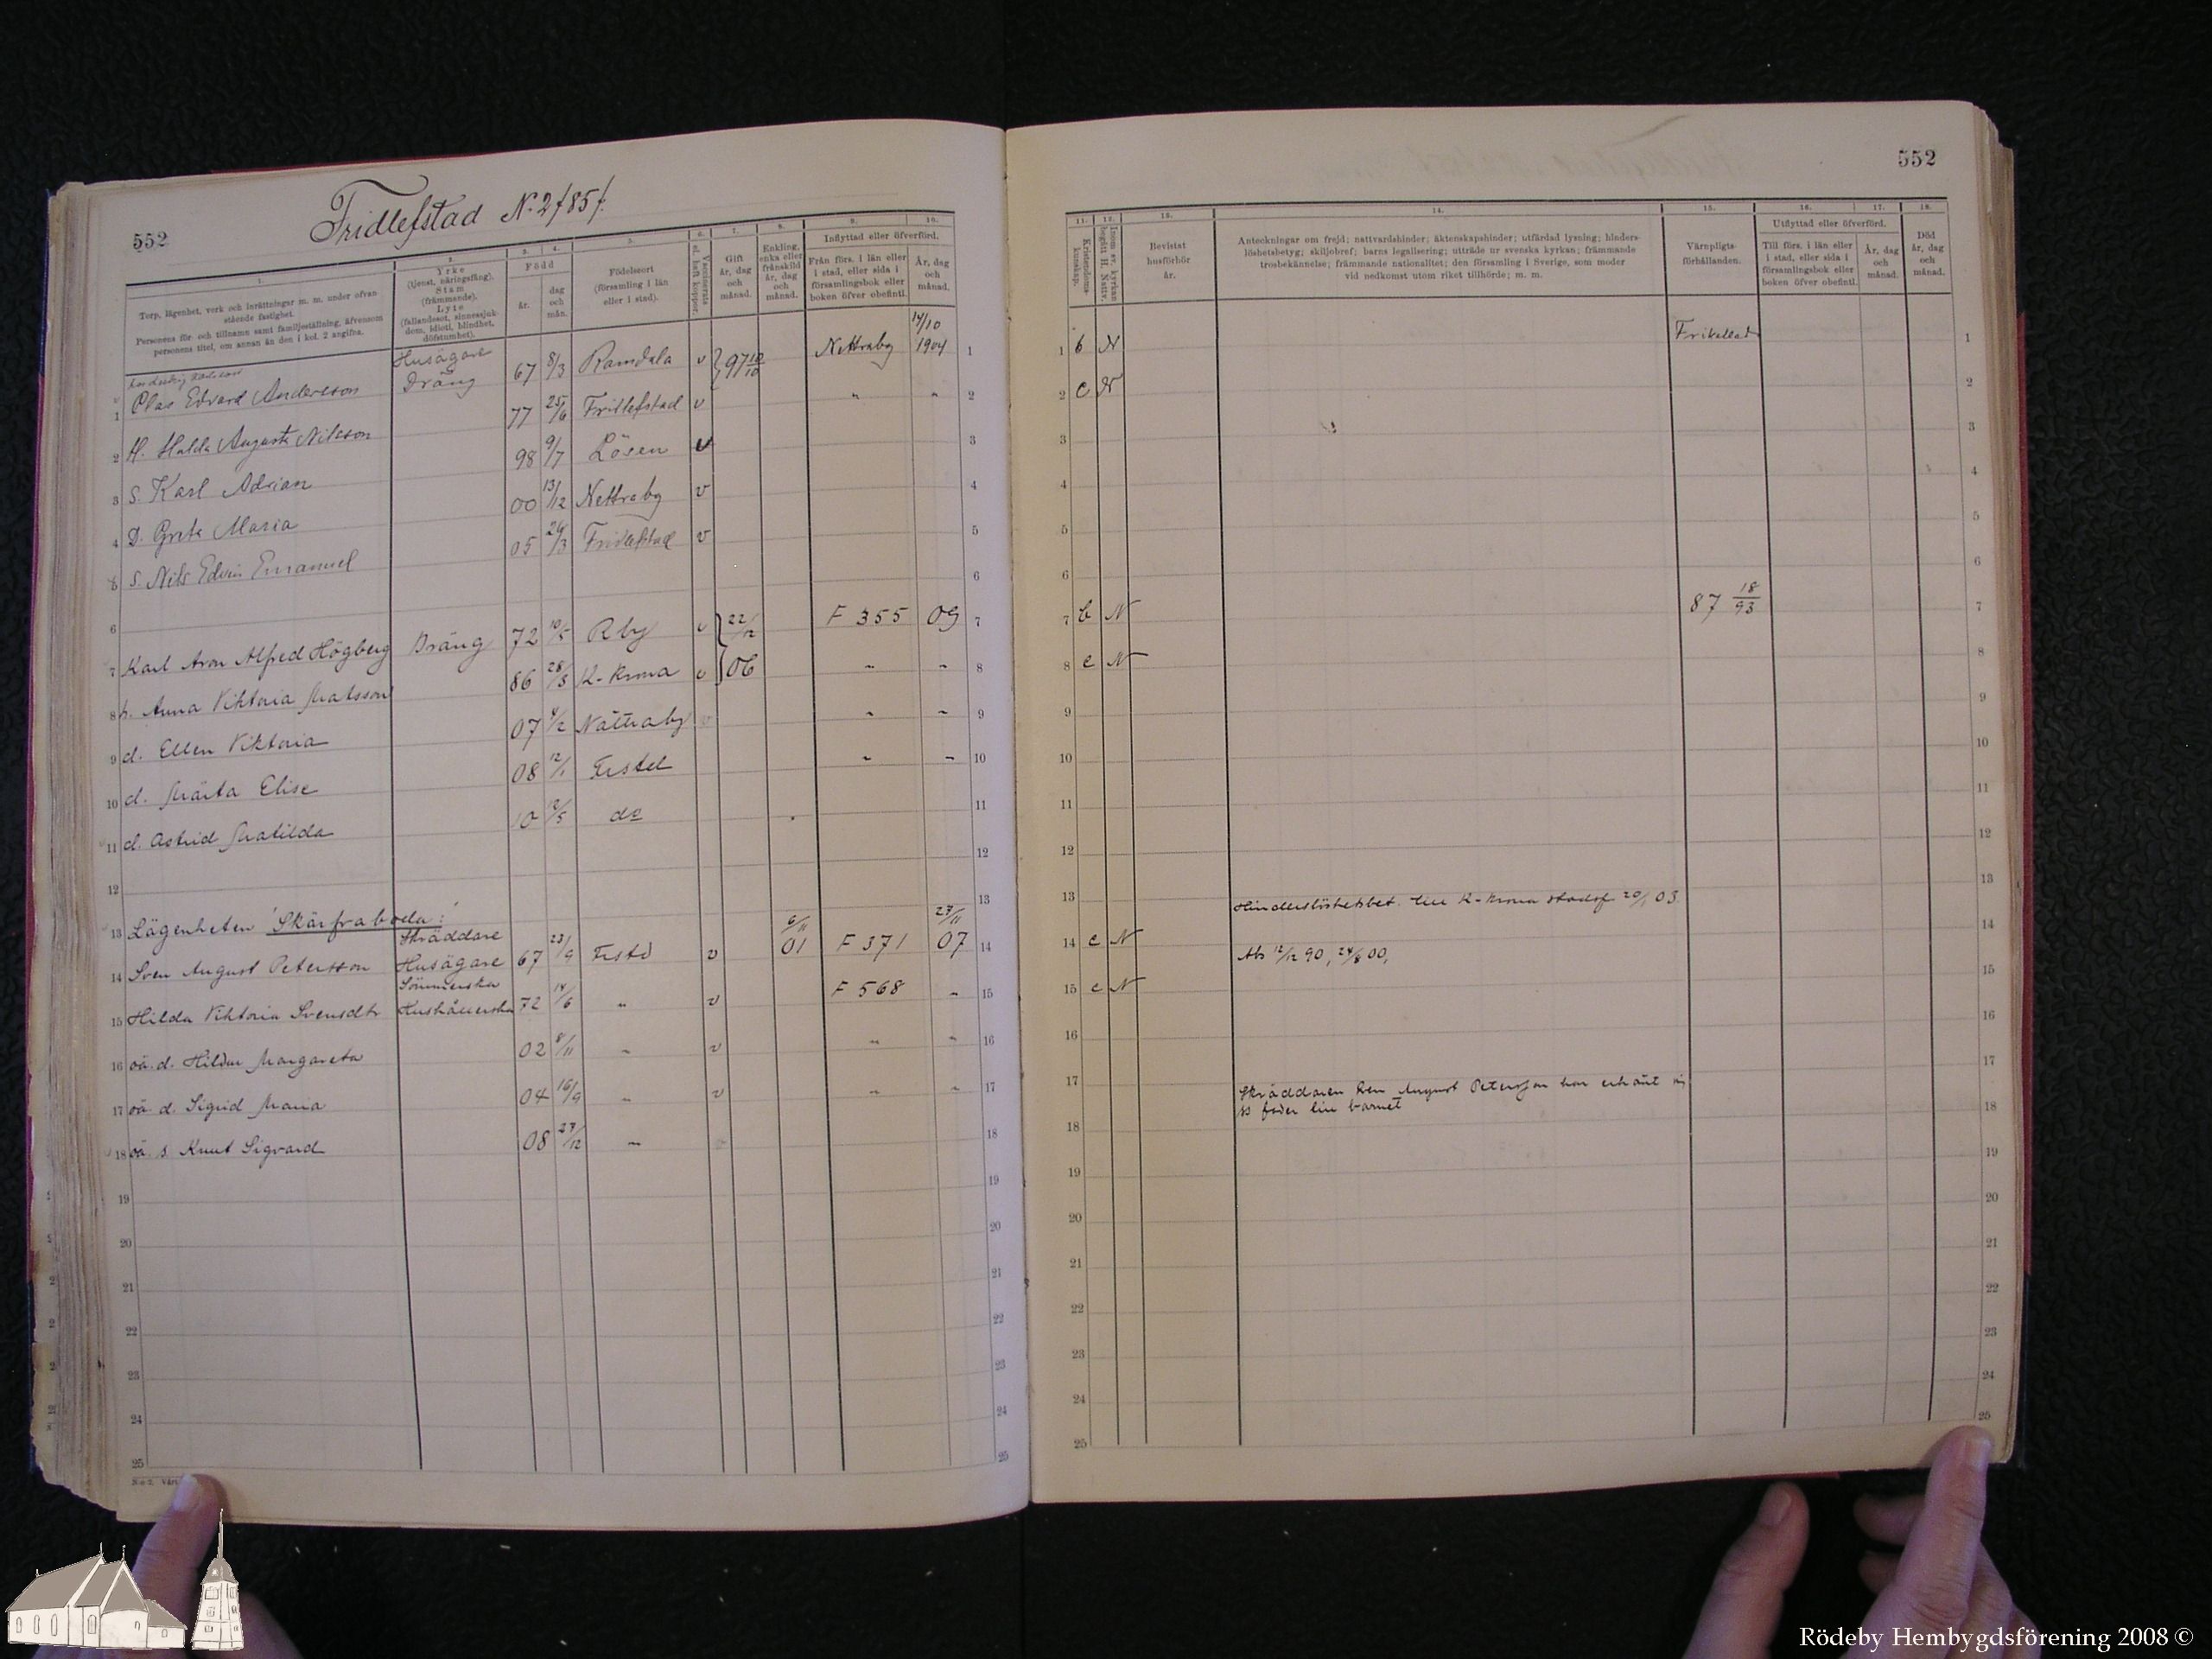 552
Fridlefstad N. 2 /85/.
1.
Torp, lägenhet, verk och inrättningar m. m. under ofvan-
stående fastighet.
Personens för- och tillnamn samt familjeställning, äfvensom
personens titel, om annan än den i kol. 2 angifna.
2.
Yrke
(tjenst, näringsfång).
Stam
(främmande).
Lyte
(fallandesot, sinnessjuk-
dom, idioti, blindhet,
döfstumhet).
3. 4.
Född
år.
dag
och
mån.
5.
Födelseort
(församling i län
eller i stad).
6.
Vaccinerats
el. haft koppor.
7.
Gift
år, dag
och
månad.
8.
Enkling,
enka eller
frånskild
år, dag
och
månad.
9. 10.
Inflyttad eller öfverförd.
Från förs. i län eller
i stad, eller sida i
församlingsbok eller
boken öfver obefintl.
År, dag
och
månad.
1 Olas Edvard Andersson Husägare Dräng 67 8/3 Ramdala v 97 10/10 Nettraby 14/10 1904 1
2 H. Hulda Augusta Nilsson 77 25/6 Fridlefstad v " " 2
3 S. Karl Adrian 98 9/7 Lösen v 3
4 D. Greta Maria 00 13/12 Nettraby v 4
5 S. Nils Edvin Emanuel 05 26/3 Fridlefstad v 5
6 6
7 Karl Aron Alfred Högberg Dräng 72 10/5 Rby v 22/12 F 355 09 7
8 h. Anna Viktoria Matsson 86 28/8 K-krona v 06 " " 8
9 d. Ellen Viktoria 07 4/2 Nättraby v " " 9
10 d. Märta Elise 08 12/1 Frstd " " 10
11 d. Astrid Matilda 10 12/5 do 11
12 12
13 Lägenheten 'Skärfraboda:' 13
14 Sven August Petersson Skräddare Husägare 67 23/9 Frstd v 6/11 01 F 371 27/11 07 14
15 Hilda Viktoria Svensdtr Sömmerska Hushållerska 72 14/6 " v F 568 " 15
16 oä. d. Hildur Margareta 02 8/11 " v " " 16
17 oä d. Sigrid Maria 04 16/9 " v " " 17
18 oä. s. Knut Sigvard 08 27/12 " 18
19 19
20 20
21 21
22 22
23 23
24 24
25 25
552
11.
Kristendoms-
kunskap.
12.
Inom sv. kyrkan
begått H. Nattv.
13.
Bevistat
husförhör
år.
14.
Anteckningar om frejd; nattvardshinder; äktenskapshinder; utfärdad lysning; hinders-
löshetsbetyg; skiljobref; barns legalisering; utträde ur svenska kyrkan; främmande
trosbekännelse; främmande nationalitet; den församling i Sverige, som moder
vid nedkomst utom riket tillhörde; m. m.
15.
Värnpligts-
förhållanden.
16. 17.
Utflyttad eller öfverförd.
Till förs. i län eller
i stad, eller sida i
församlingsbok eller
boken öfver obefintl.
År, dag
och
månad.
18.
Död
år, dag
och
månad.
1 b N Frikallad 1
2 c N 2
3 3
4 4
5 5
6 6
7 b N 87 18/93 7
8 c N 8
9 9
10 10
11 11
12 12
13 13
Hinderslöshetsbet. till K-krona stadsf 20/1 03.
14 c N Abs 12/12 90, 24/8 00, 14
15 c N 15
16 16
17 17
Skräddaren Sven August Petersson har erkänt
fader till barnet
18 18
19 19
20 20
21 21
22 22
23 23
24 24
25 25
Rödeby Hembygdsförening 2008 ©